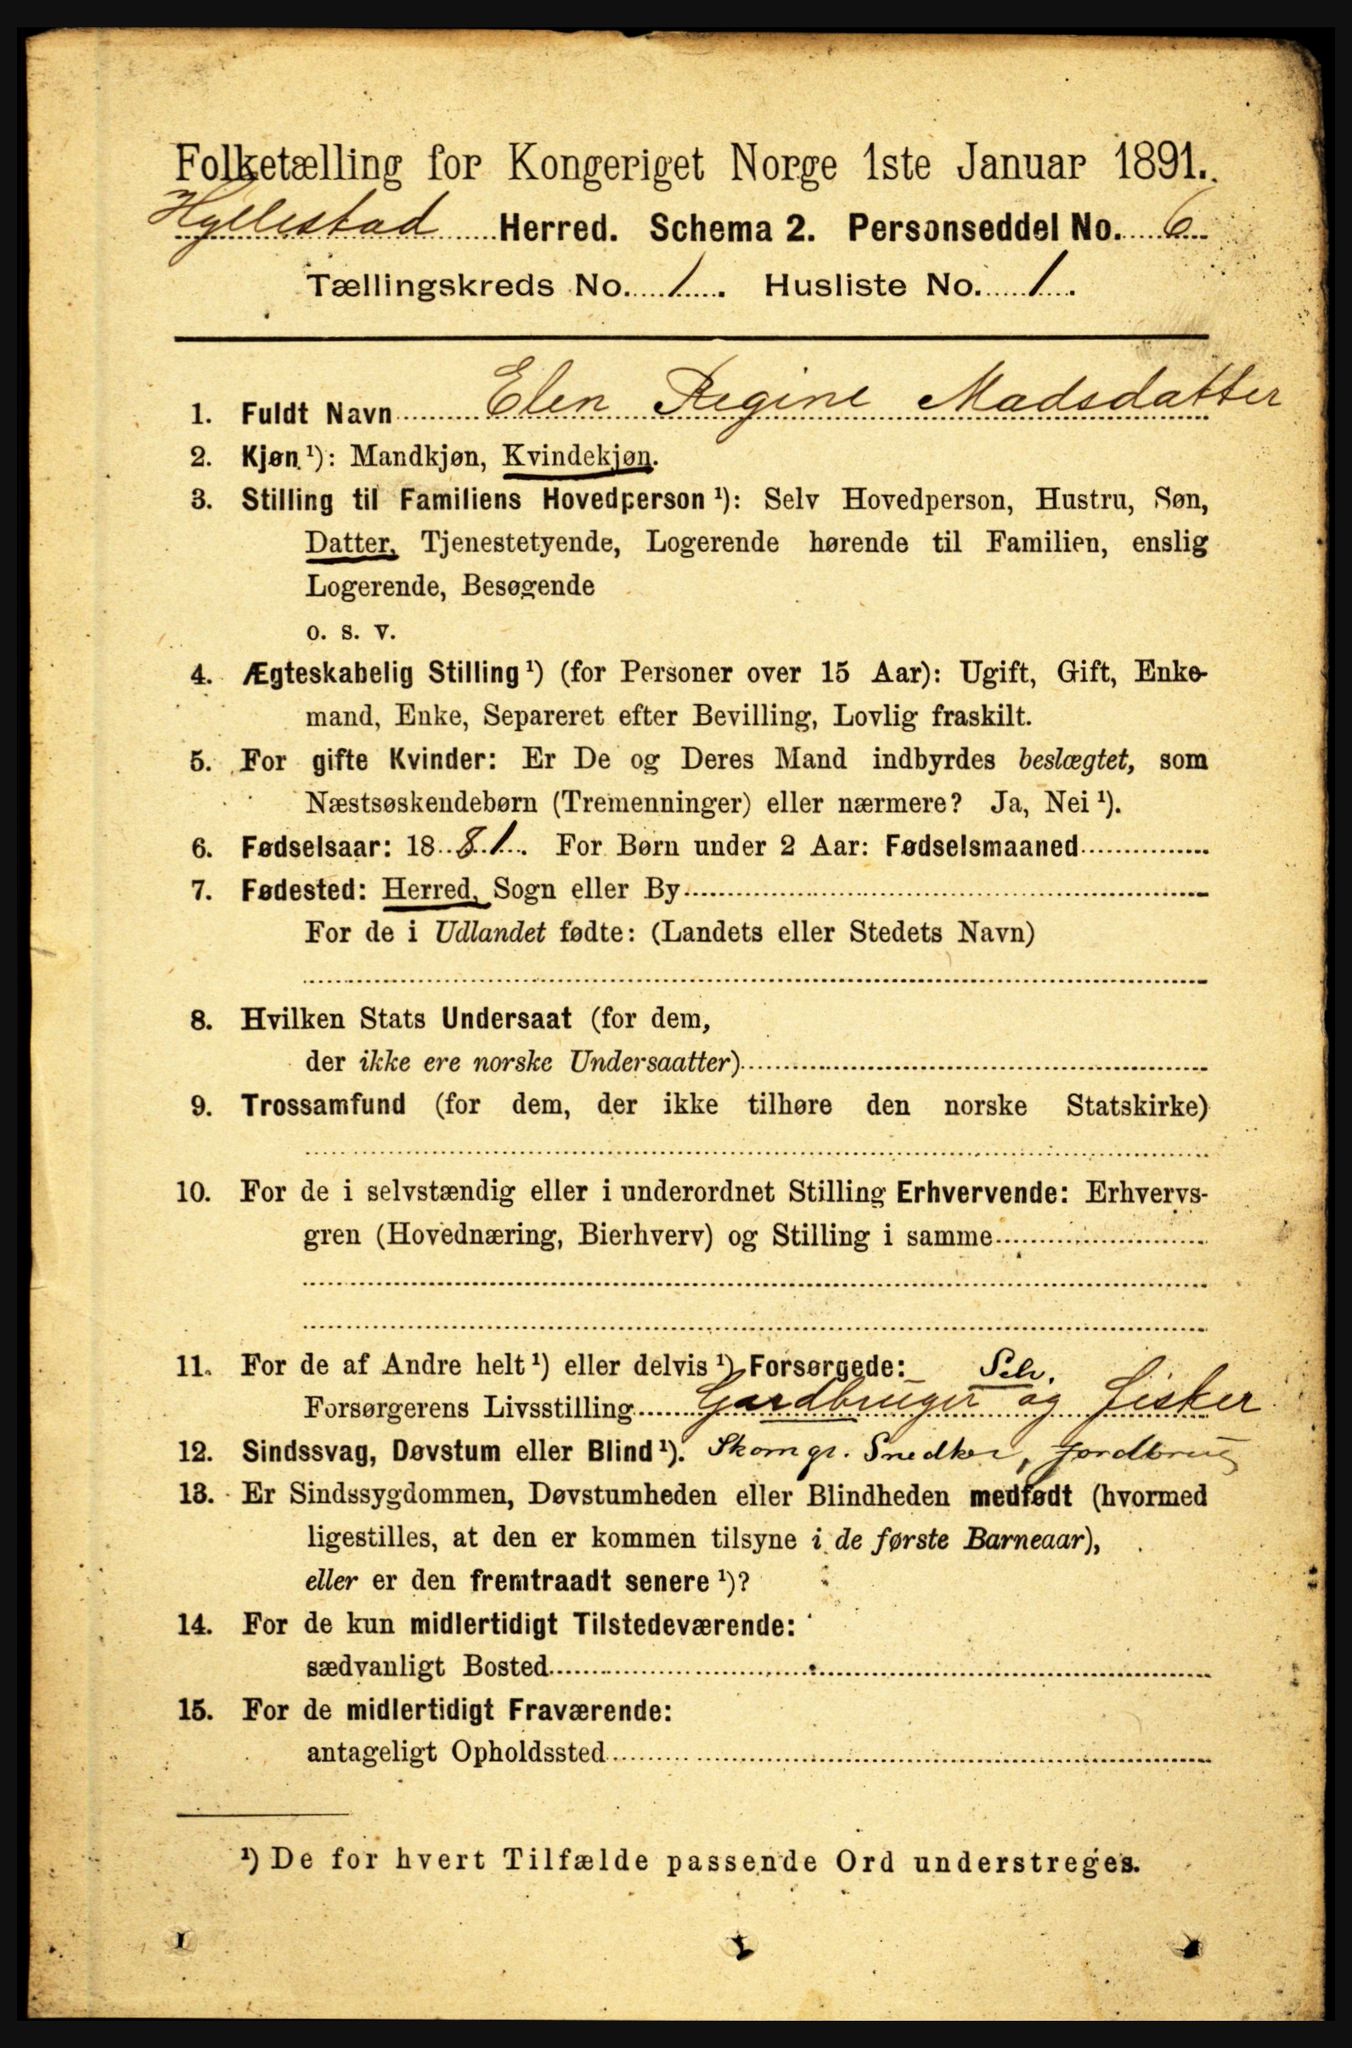 Folketælling for Kongeriget Norge 1ste Januar 1891.
Hyllestad Herred. Schema 2. Personseddel No. 6
Tællingskreds No. 1. Husliste No. 1.
1. Fuldt Navn Elen Regine Madsdatter
2. Kjøn ¹): Mandkjøn, Kvindekjøn.
3. Stilling til Familiens Hovedperson ¹): Selv Hovedperson, Hustru, Søn,
Datter, Tjenestetyende, Logerende hørende til Familien, enslig
Logerende, Besøgende
o. s. v.
4. Ægteskabelig Stilling ¹) (for Personer over 15 Aar): Ugift, Gift, Enke-
mand, Enke, Separeret efter Bevilling, Lovlig fraskilt.
5. For gifte Kvinder: Er De og Deres Mand indbyrdes beslægtet, som
Næstsøskendebørn (Tremenninger) eller nærmere? Ja, Nei ¹).
6. Fødselsaar: 1881. For Børn under 2 Aar: Fødselsmaaned
7. Fødested: Herred, Sogn eller By
For de i Udlandet fødte: (Landets eller Stedets Navn)
8. Hvilken Stats Undersaat (for dem,
der ikke ere norske Undersaatter)
9. Trossamfund (for dem, der ikke tilhøre den norske Statskirke)
10. For de i selvstændig eller i underordnet Stilling Erhvervende: Erhvervs-
gren (Hovednæring, Bierhverv) og Stilling i samme
11. For de af Andre helt ¹) eller delvis ¹) Forsørgede: Selv.
Forsørgerens Livsstilling Gardbruger og fisker
12. Sindssvag, Døvstum eller Blind ¹). Skomgr. Snedker, Jordbrug
13. Er Sindssygdommen, Døvstumheden eller Blindheden medfødt (hvormed
ligestilles, at den er kommen tilsyne i de første Barneaar),
eller er den fremtraadt senere ¹)?
14. For de kun midlertidigt Tilstedeværende:
sædvanligt Bosted
15. For de midlertidigt Fraværende:
antageligt Opholdssted
¹) De for hvert Tilfælde passende Ord understreges.